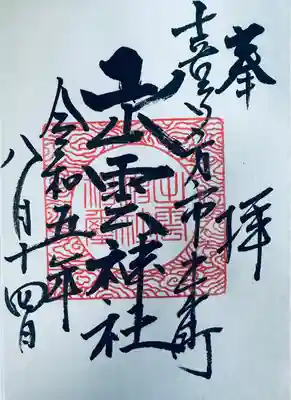 奉拝
喜多方市上町
出雲神社
令和五年
八月十四日